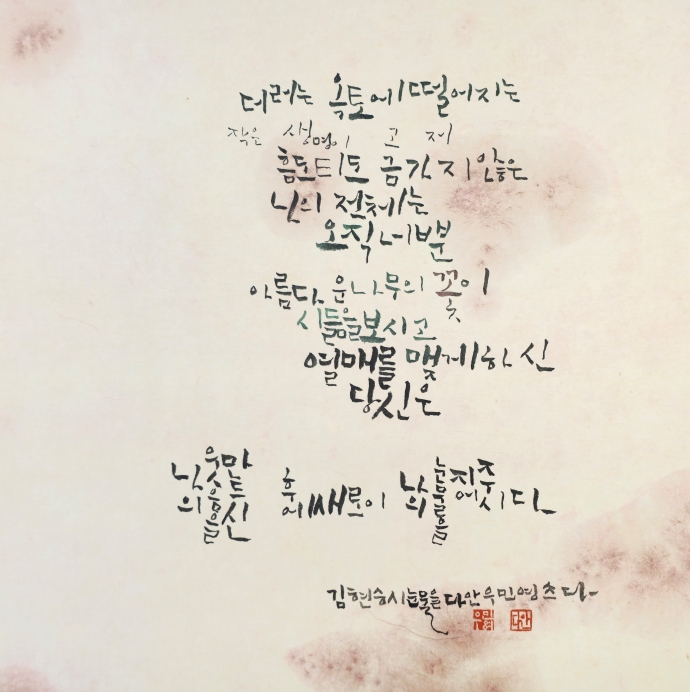 더러는 옥토에 떨어지는
작은 생명이고저
흠도 티도 금가지 않은
나의 전체는
오직 이뿐
아름다운 나무의 꽃이
시듦을 보시고
열매를 맺게 하신
당신은
나의 웃음을 만드신 후에 새로이 나의 눈물을 지어 주시다
김현승 시 눈물을 다안 우민영 쓰다